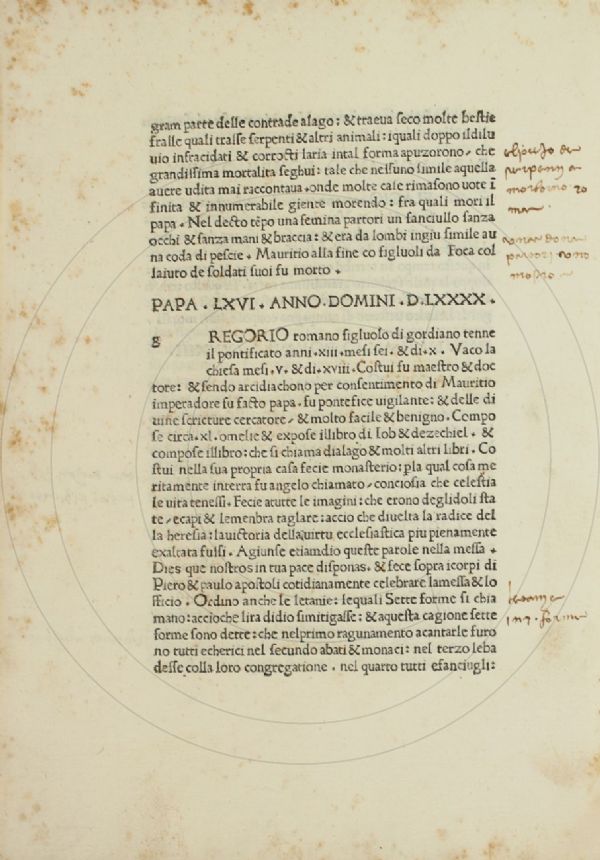 gram parte delle contrade alago: & traeua seco molte bestie
fralle quali trasse serpenti & altri animali: iquali doppo ildilu
uio infracidati & corrosti laria intal forma apuzorono, che
grandissima mortalita seghui: tale che neissuno simile aquella
auere udita mai raccontaua. onde molte case rimasono uote ī
finita & innumerabile giente morendo: fra quali mori il
papa. Nel decto tēpo una femina partori un fanciullo sanza
occhi & sanza mani & braccia: & era da lombi ingiu simile au
na coda di pescie. Mauritio alla fine co figluoli da Foca col
laiuto de soldati suoi fu morto.
PAPA. LXVI. ANNO. DOMINI. D. LXXXX.
g REGORIO romano figluolo di gordiano tenne
il pontificato anni. xiii. mesi sei. & di. x. Vaco la
chiesa mesi. v. & di. xviii. Costui fu maestro & doc
tore: & sendo arcidiachono per consentimento di Mauritio
imperadore fu facto papa. fu pontefice uigilante: & delle di
uine scricture cercatore, & molto facile & benigno. Compo
se circa. xl. omelie & expose illibro di Iob & dezechiel. &
compose illibro: che si chiama dialago & molti altri libri. Co
stui nella sua propria casa fecie monasterio: pla qual cosa me
ritamente interra fu angelo chiamato, conciosia che celestia
le uita tenessi. Fecie atutte le imagini: che erono deglidoli sta
te, ecapi & lemenbra taglare: accio che diuelta la radice del
la heresia: lauictoria della uirtu ecclesiastica piu pienamente
exaltata fussi. Agiunse etiamdio queste parole nella messa.
Dies que nostros in tua pace disponas. & fece sopra icorpi di
Piero & paulo apostoli cotidianamente celebrare lamessa & lo
fficio. Ordino anche le letanie: lequali Sette forme si chia
mano: accioche lira didio simitigasse: & aquesta cagione sette
forme sono dette: che nelprimo ragunamento acantarle furo
no tutti echerici nel secundo abati & monaci: nel terzo leba
desse colla loro congregatione. nel quarto tutti efanciugli: